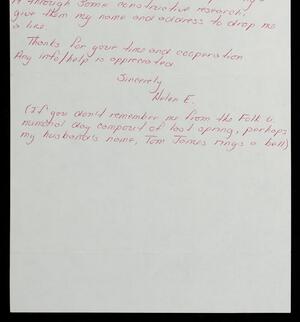 it through some constructive research,
give them my name and address to drop me
a line.
Thanks for your time and cooperation
Any info/help is appreciated.
Sincerely
Helen E.
(If you don't remember me from the Folk &
day campout of last spring, perhaps
my husband's name, Tom James rings a bell)